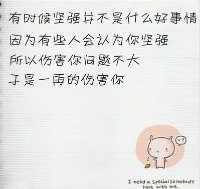 有时候坚强并不是什么好事情
因为有些人会认为你坚强
所以伤害你问题不大
于是一再的伤害你
I need a special somebody
here with me.